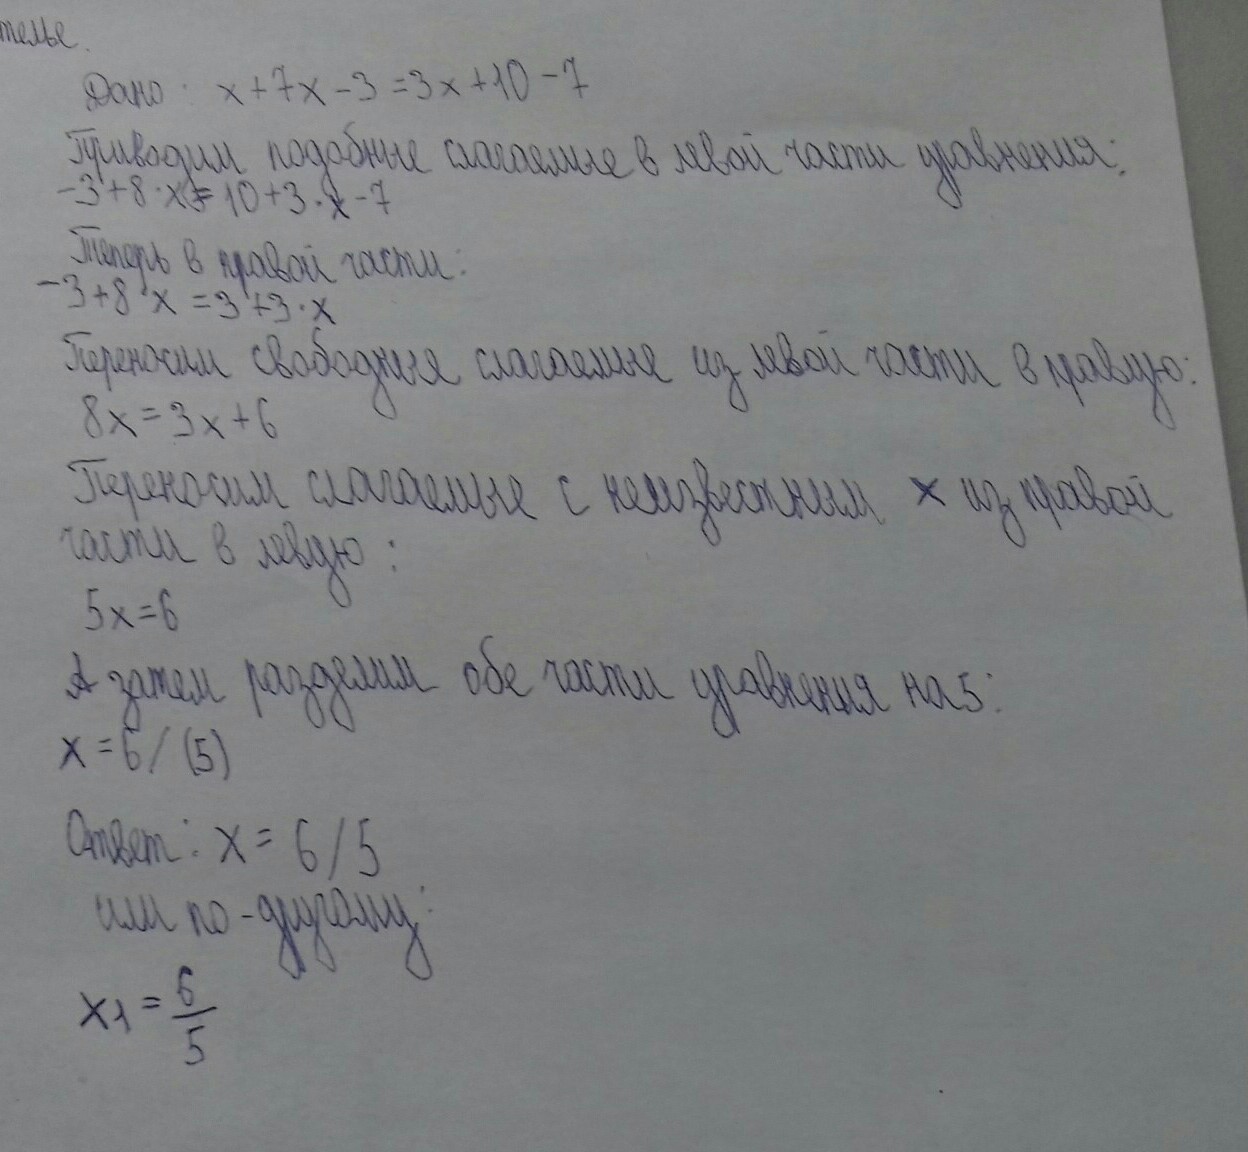 Дано: x+7x-3=3x+10-7
Приводим подобные слагаемые в левой части уравнения:
-3+8·x=10+3·x-7
Теперь в правой части:
-3+8·x=3+3·x
Переносим свободные слагаемые из левой части в правую:
8x=3x+6
Переносим слагаемые с неизвестным x из правой
части в левую:
5x=6
А затем разделим обе части уравнения на 5:
x=6/(5)
Ответ: x=6/5
или по-другому:
x1=6/5